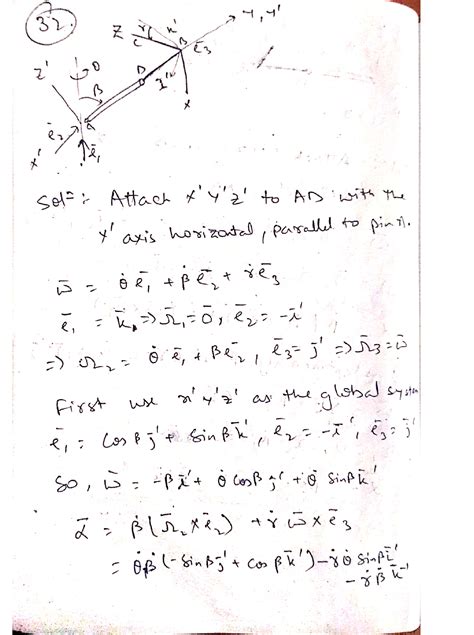 32.
Z γ x' Y, Y'
C B ē₃
Z' θ D
β z''
A x
ē₂
x' ē₁
Solⁿ :- Attach x' y' z' to AD with the
x' axis horizontal, parallel to pin A.
ω̄ = θ̇ ē₁ + β̇ ē₂ + γ̇ ē₃
ē₁ = k̄, => Ω̄₁ = 0̄, ē₂ = -ī'
=> Ω₂ = θ̇ ē₁ + βē₂, ē₃ = j̄' => Ω̄₃ = ω̄
First use x' y' z' as the global system
ē₁ = cos β j̄' + sin β k̄', ē₂ = -ī', ē₃ = j̄'
So, ω̄ = -β ī' + θ̇ cos β j̄' + θ̇ sin β k̄'
ᾱ = β̇ (Ω̄₂ × ē₂) + γ̇ ω̄ × ē₃
= θ̇β̇ (-sin β j̄' + cos β k̄') - γ̇ θ̇ sin β ī'
- γ̇ β̇ k̄'